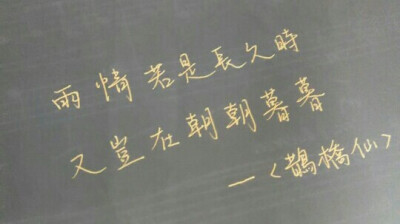 兩情若是長久時
又豈在朝朝暮暮
—〈鵲橋仙〉